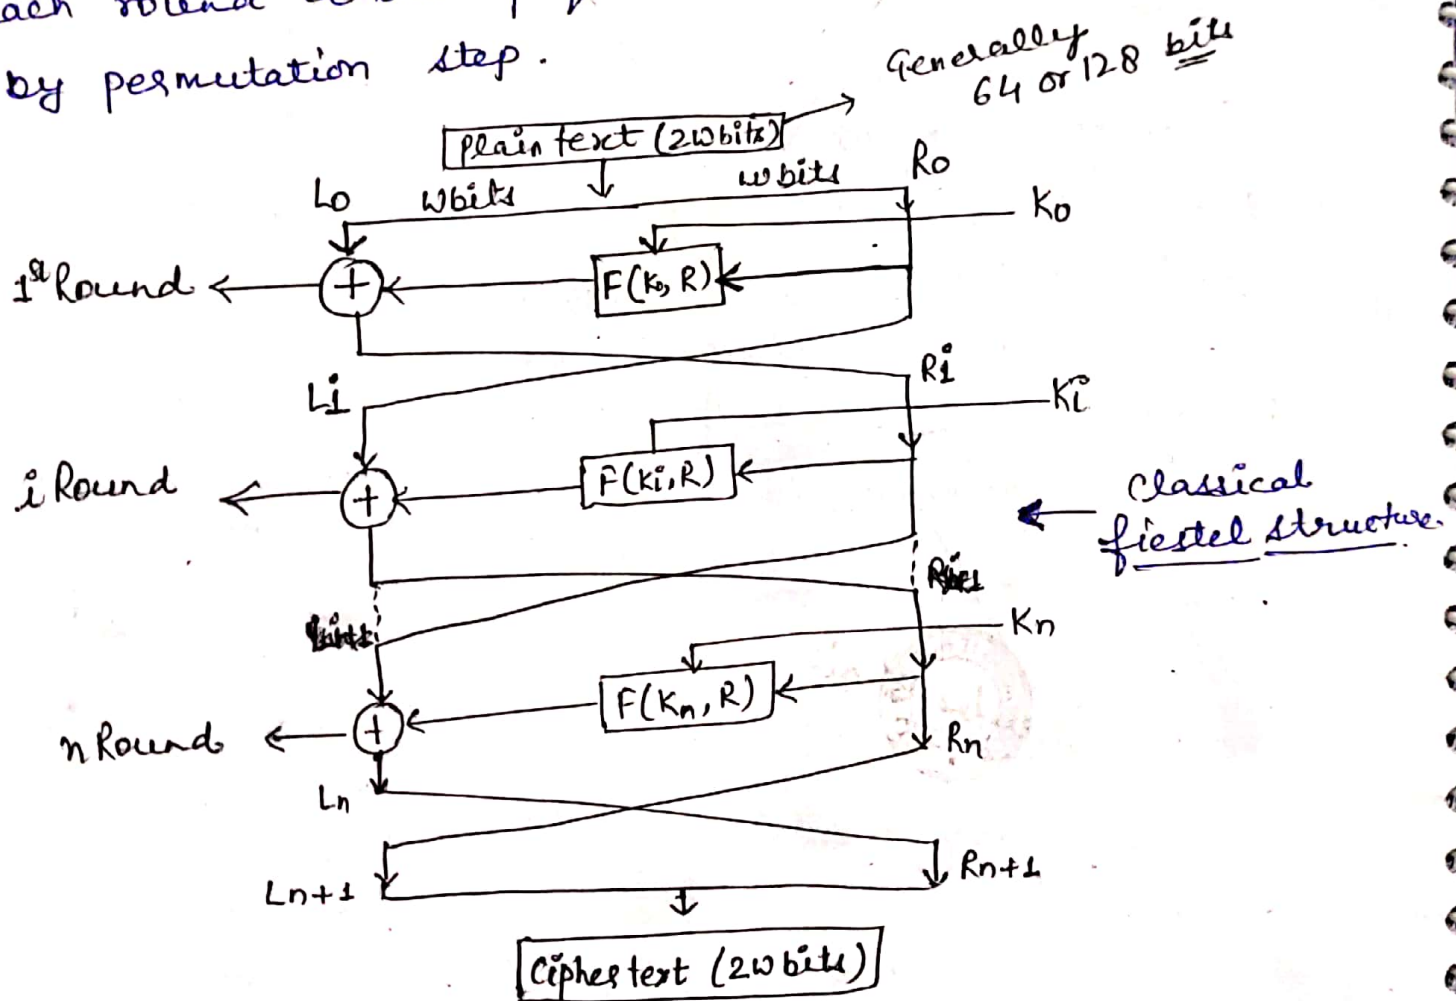 by permutation step.
Generally
64 or 128 bits
Plain text (2w bits)
L0 Wbits w bits R0
K0
1st Round + F(K0, R)
L1 R1
Ki
i Round + F(Ki, R)
Classical
fiestel structure.
Kn
n Round + F(Kn, R)
Rn
Ln
Ln+1 Rn+1
Cipher text (2w bits)